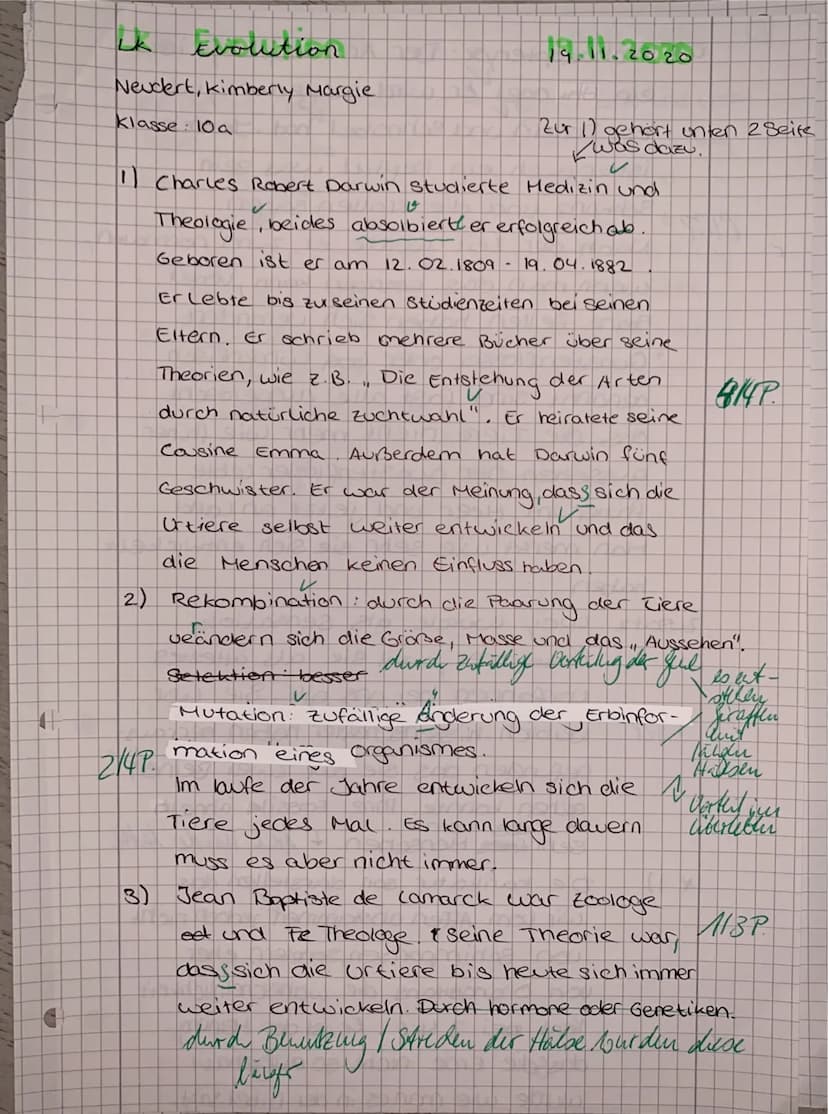 LK Evolution 19.11.2020
Neudert, Kimberly Margie
Klasse: 10a
Zur 1) gehört unten 2 Seite
was dazu.
1) Charles Robert Darwin studierte Medizin und
Theologie, beides absolbiert er erfolgreich ab.
Geboren ist er am 12.02.1809 - 19.04.1882.
Er lebte bis zu seinen Studienzeiten bei seinen
Eltern. Er schrieb mehrere Bücher über seine
Theorien, wie z.B. „Die Entstehung der Arten
4/4P.
durch natürliche Zuchtwahl". Er heiratete seine
Cousine Emma. Außerdem hat Darwin fünf
Geschwister. Er war der Meinung, dass sich die
Urtiere selbst weiter entwickeln und das
die Menschen keinen Einfluss haben.
2) Rekombination: durch die Paarung der Tiere
verändern sich die Größe, Masse und das „Aussehen".
Selektion: besser durch zufällige Verteilung der
es ent-
stehen
Mutation: zufällige Änderung der „Erbinfor-
Giraffen
mit
mation" eines Organismes.
längeren
Hälsen
2/4P.
Im laufe der Jahre entwickeln sich die
Vorteil im
Tiere jedes Mal. Es kann lange dauern
Überleben
muss es aber nicht immer.
3) Jean Baptiste de Lamarck war Zoologe
und Theologe. Seine Theorie war,
1/3P.
dass sich die Urtiere bis heute sich immer
weiter entwickeln. Durch hormone oder Genetiken.
durch Benutzung / Strecken der Hälse wurden diese
länger